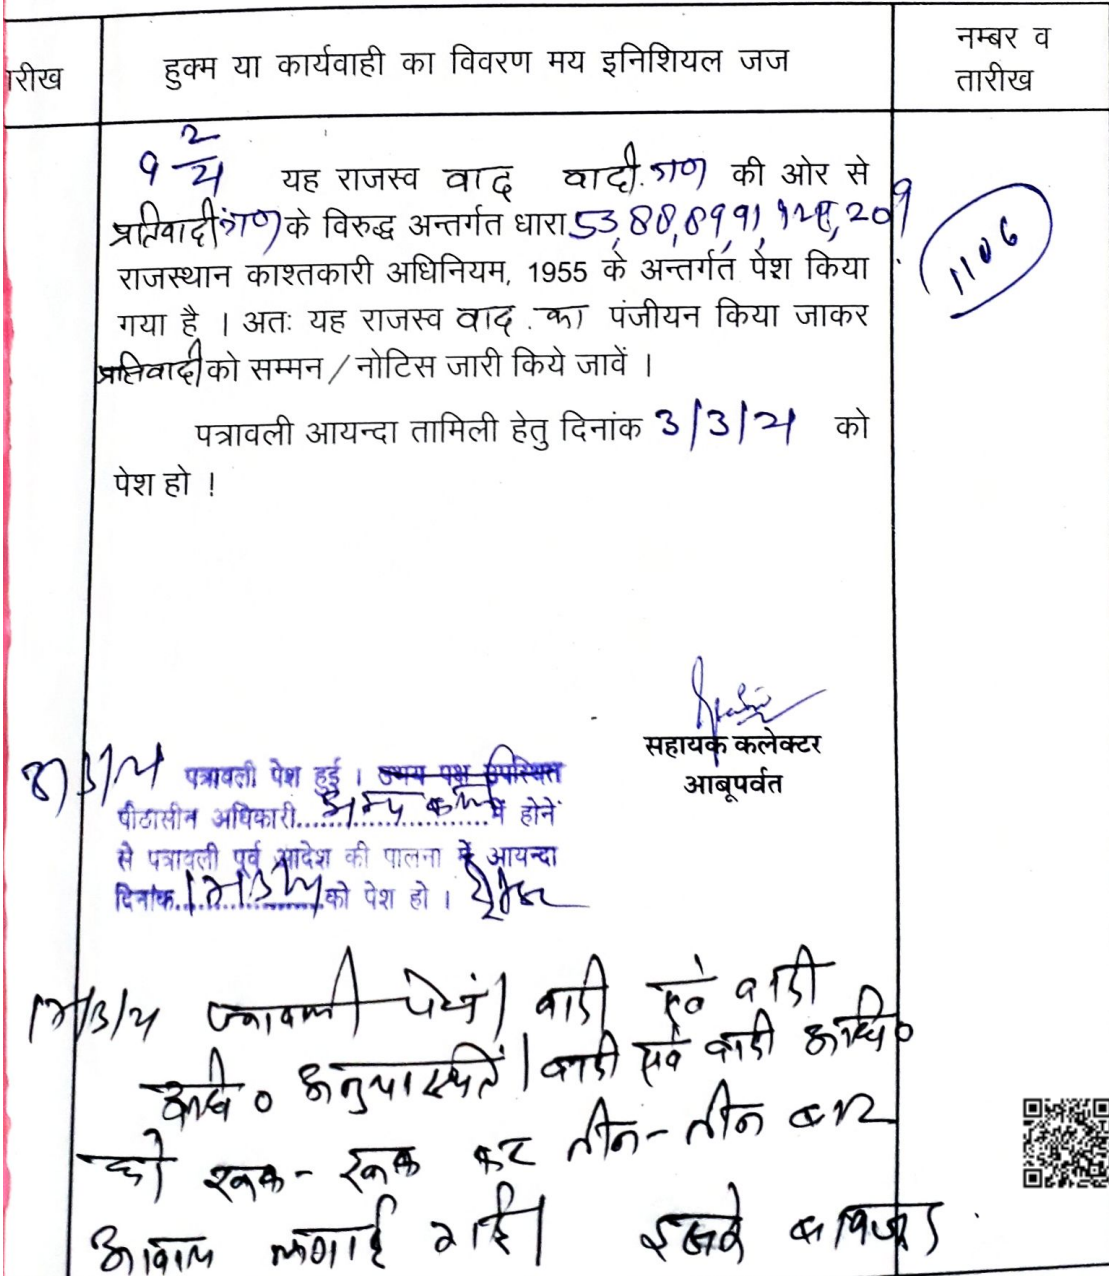 तारीख
हुक्म या कार्यवाही का विवरण मय इनिशियल जज
नम्बर व
तारीख
9 2/21 यह राजस्व वाद वादी गण की ओर से
प्रतिवादी गण के विरुद्ध अन्तर्गत धारा 53, 88, 89, 91, 128, 209
राजस्थान काश्तकारी अधिनियम, 1955 के अन्तर्गत पेश किया
गया है । अतः यह राजस्व वाद का पंजीयन किया जाकर
प्रतिवादी को सम्मन/नोटिस जारी किये जावें ।
पत्रावली आयन्दा तामिली हेतु दिनांक 3/3/21 को
पेश हो !
1106
सहायक कलेक्टर
आबूपर्वत
पत्रावली पेश हुई । उभय पक्ष उपस्थित
पीठासीन अधिकारी अन्य कार्य में होनें
से पत्रावली पूर्व आदेश की पालना में आयन्दा
दिनांक को पेश हो ।
पत्रावली पेश। वादी एवं वादी
अधि० अनुपस्थित। वादी एवं वादी अधि०
को रूक-रूक कर तीन-तीन बार
आवाज लगाई गई। इसके बावजूद